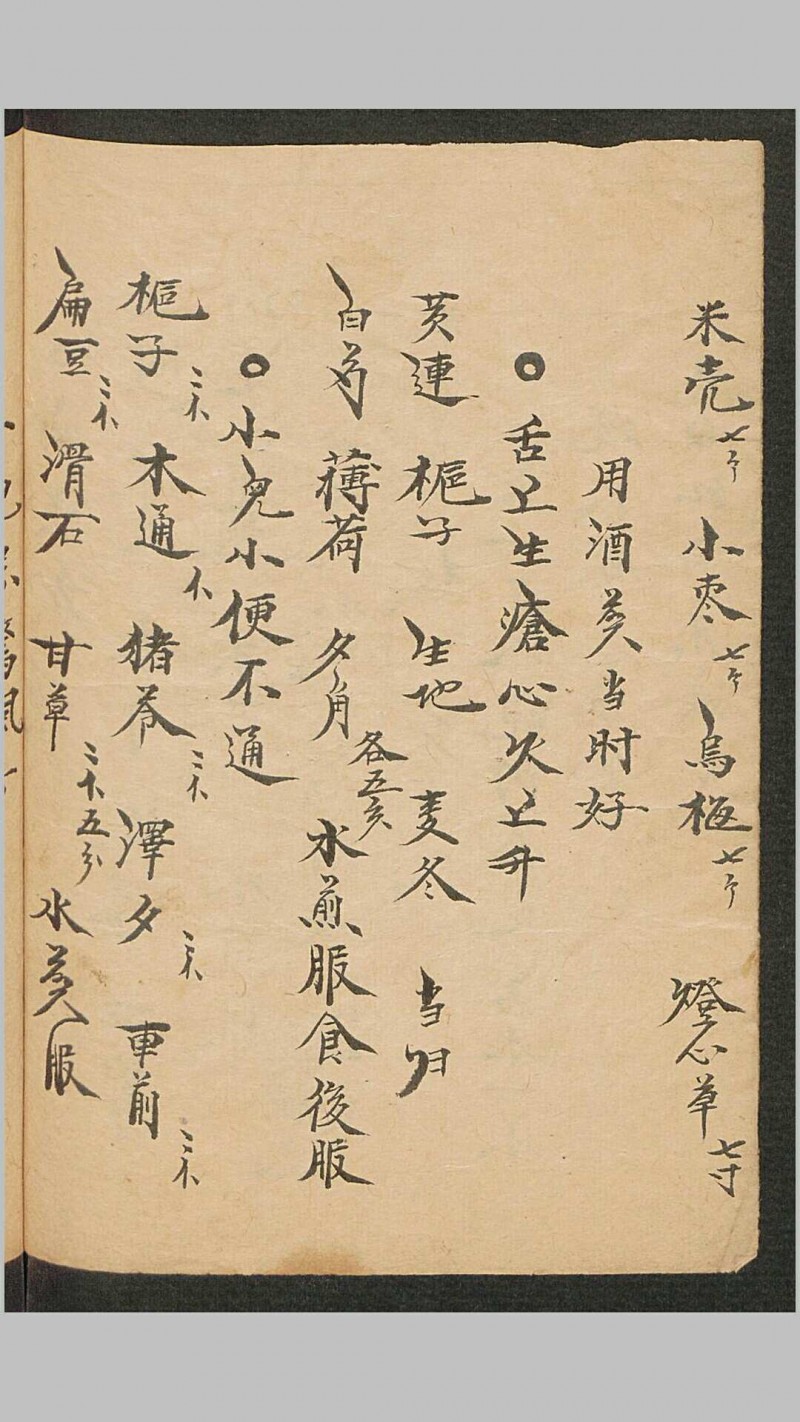 米壳七个 小枣七个 烏梅七个 燈心草七寸
用酒煎当时好
舌上生瘡心火上升
黄連 梔子 生地 麦冬 当归
白芍 薄荷 夕角各五分 水煎服食後服
小兒小便不通
梔子二木 木通木 猪苓二木 澤夕二木 車前二木
扁豆二木 滑石 甘草二木五分 水煎服